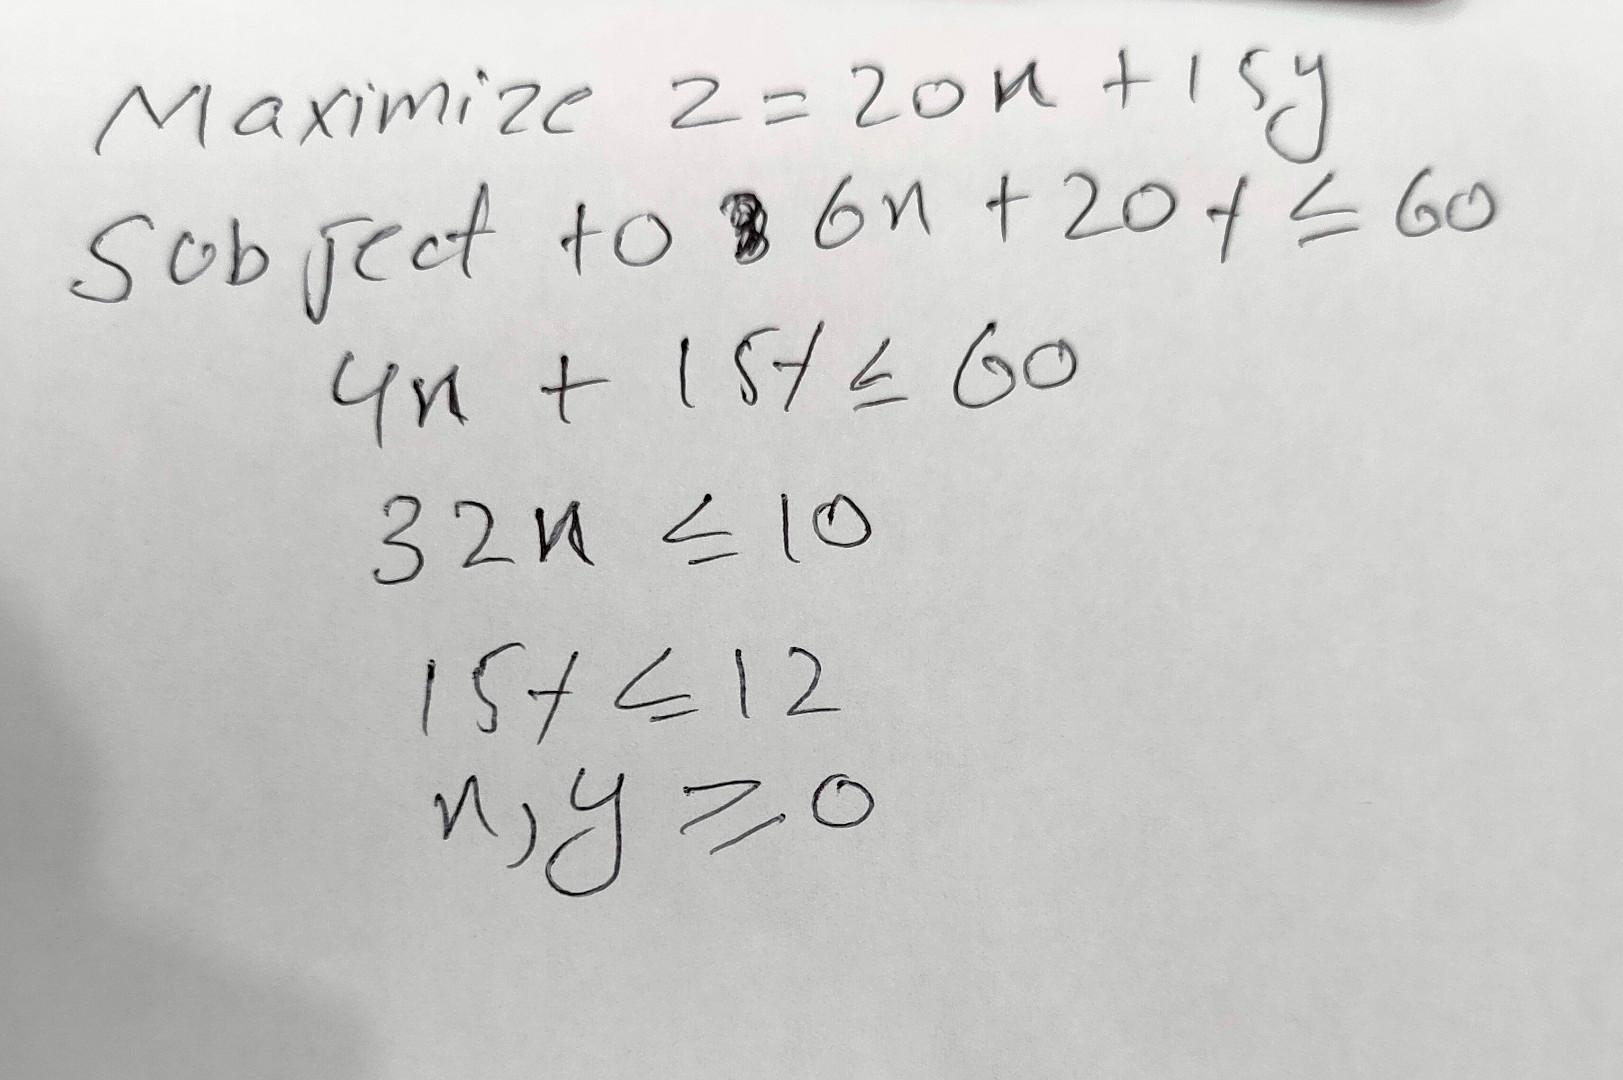 Maximize z = 20x + 15y
Subject to 6x + 20y ≤ 60
4x + 15y ≤ 60
32x ≤ 10
15y ≤ 12
x, y ≥ 0